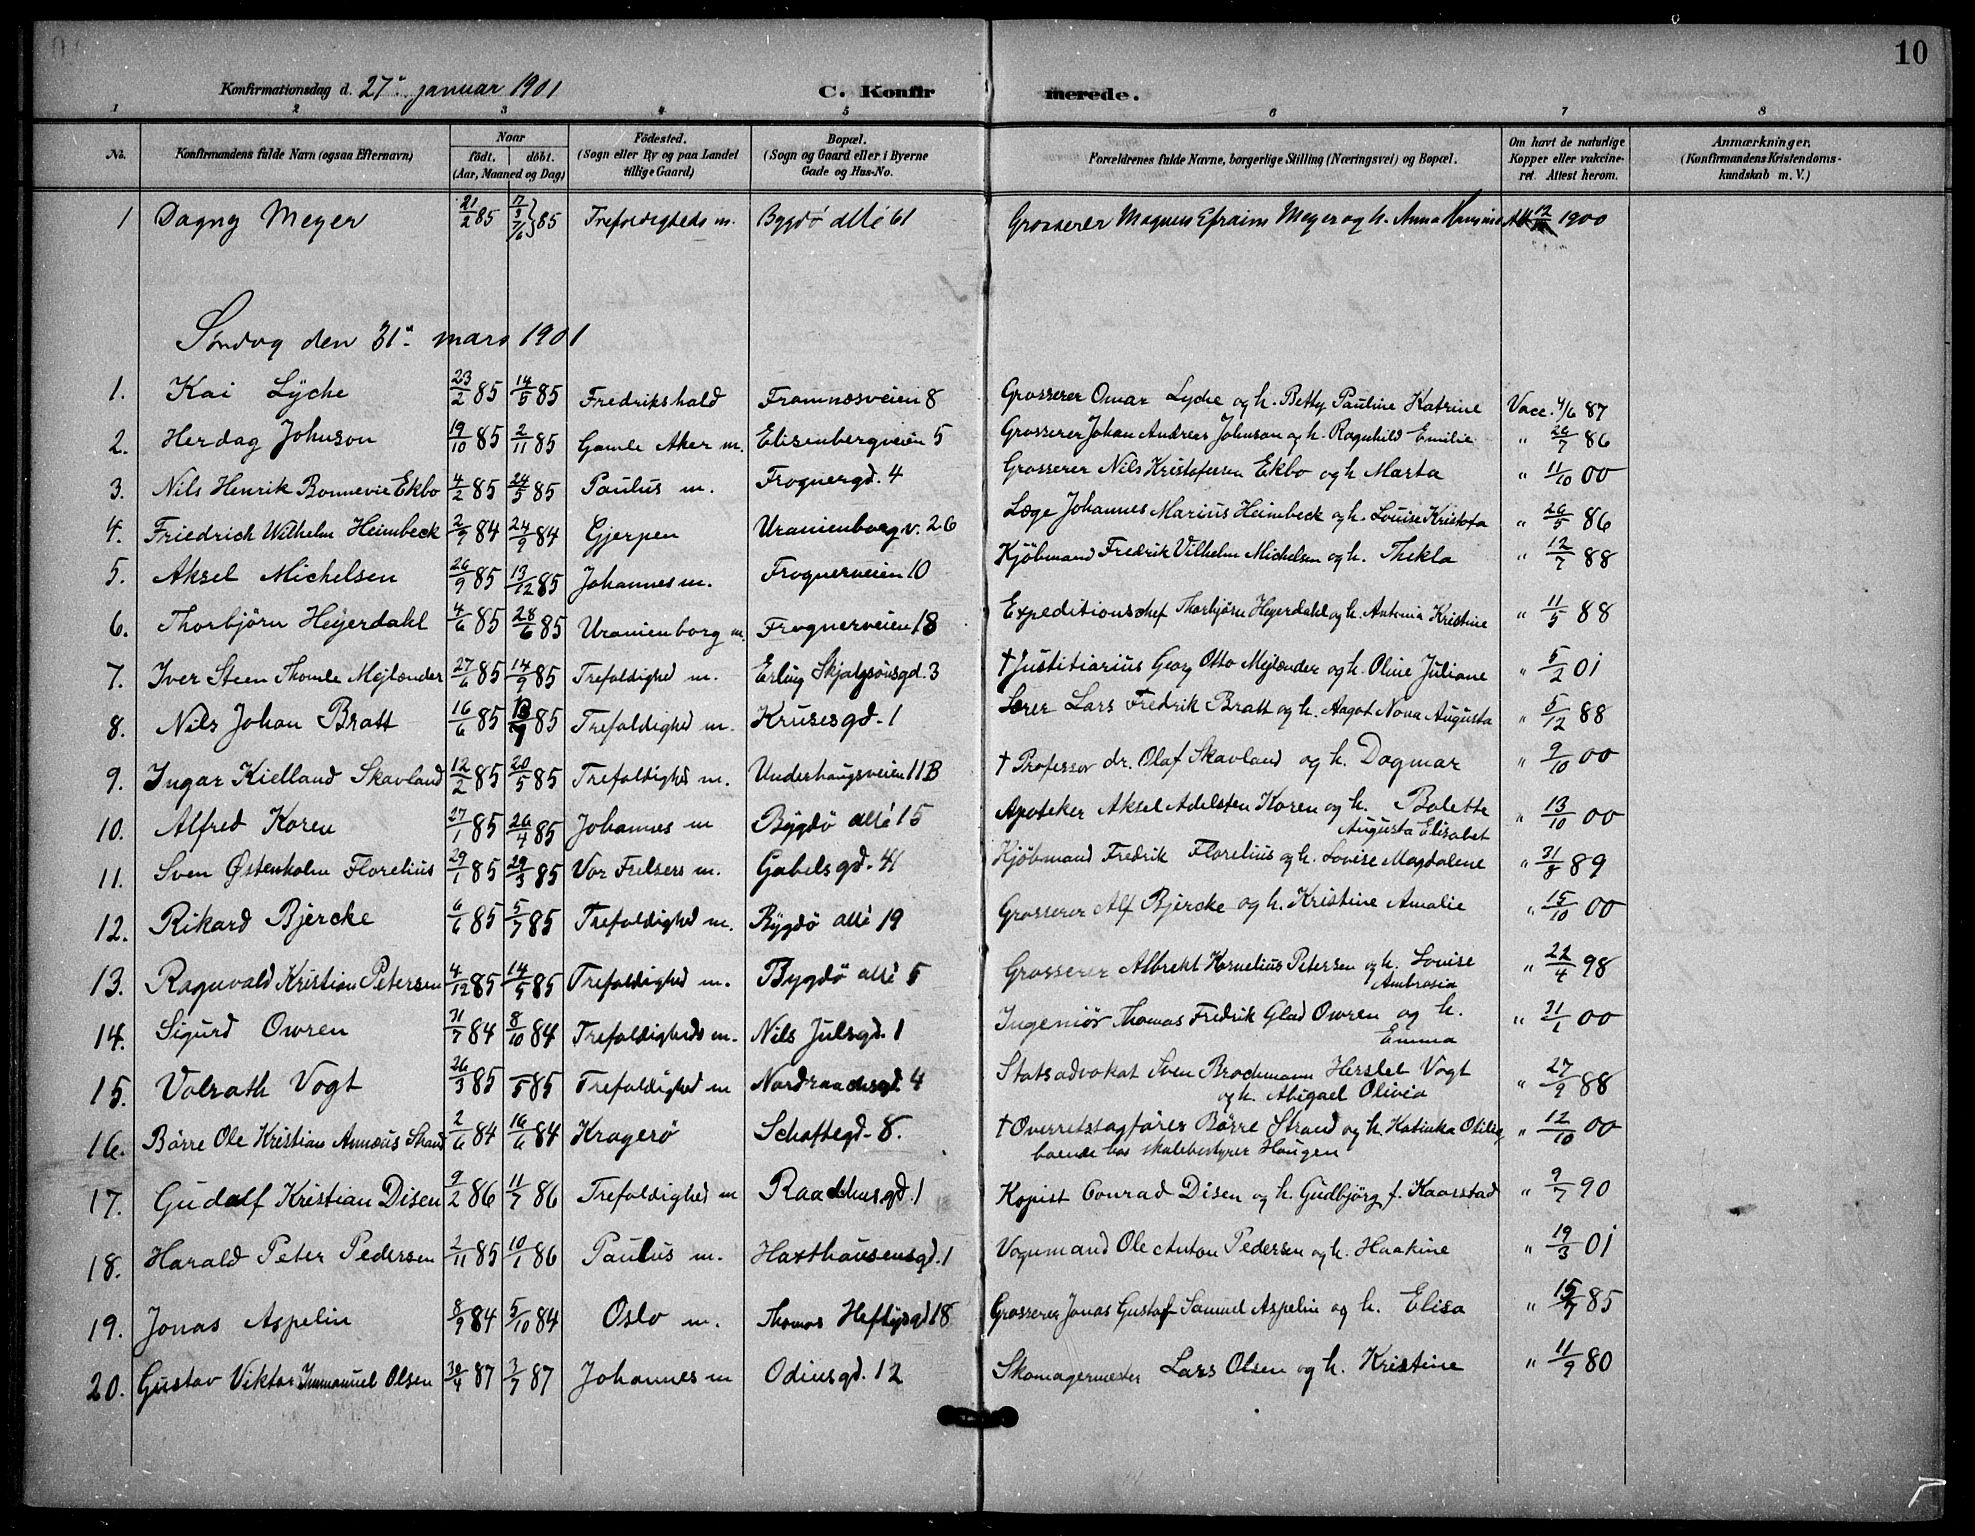 10
Konfirmationsdag d. 27de januar 1901
C. Konfirmerede.
1 2 3 4 5 6 7 8
No. Konfirmandens fulde Navn (ogsaa Efternavn) Naar født. døbt. (Aar, Maaned og Dag) Fødested. (Sogn eller By og paa Landet tillige Gaard) Bopæl. (Sogn og Gaard eller i Byerne Gade og Hus-No. Forældrenes fulde Navne, borgerlige Stilling (Næringsvei) og Bopæl. Om havt de naturlige Kopper eller vakcineret. Attest herom. Anmærkninger. (Konfirmandens Kristendomskundskab m. V.)
1 Dagny Meyer 21/2 85 85 Trefoldigheds m. Bygdø allé 61 Grosserer Magnus Efraim Meyer og h. Anna 1900
Søndag den 31te mars 1901
1. Kai Lyche 23/2 85 14/5 85 Fredrikshald Framnæsveien 8 Grosserer Omar Lyche og h. Betty Pauline Katrine Vacc. 4/6 87
2. Herdag Johnson 19/10 85 2/11 85 Gamle Aker m. Elisenbergveien 5 Grosserer Johan Andreas Johnson og h. Ragnhild Emilie " 26/7 86
3. Nils Henrik Bonnevie Ekbo 4/2 85 24/5 85 Paulus m. Frognergd. 4 Grosserer Nils Kristofersen Ekbo og h. Marta " 11/10 00
4. Friedrich Wilhelm Heimbeck 2/9 84 24/9 84 Gjerpen Uranienborgv. 26 Læge Johannes Marius Heimbeck og h. Louise Kristofa " 26/5 86
5. Aksel Michelsen 26/9 85 13/12 85 Johannes m. Frognerveien 10 Kjøbmand Fredrik Vilhelm Michelsen og h. Thekla " 12/7 88
6. Thorbjörn Heyerdahl 4/6 85 28/6 85 Uranienborg m. Frognerveien 18 Expeditionschef Thorbjørn Heyerdahl og h. Antonia Kristine " 11/5 88
7. Iver Steen Thomle Mejlænder 27/6 85 14/9 85 Trefoldighed m. Erling Skjalgsønsgd. 3 † Justitiarius Georg Otto Mejlænder og h. Oline Juliane " 5/2 01
8. Nils Johan Bratt 16/6 85 85 Trefoldighed m. Krusesgd. 1 Lars Fredrik Bratt og h. Aagot Nova Augusta " 5/12 88
9. Ingar Kielland Skavland 12/2 85 20/5 85 Trefoldighed m. Underhaugsveien 11B † Professor dr. Olaf Skavland og h. Dagmar " 9/10 00
10. Alfred Koren 27/1 85 26/4 85 Johannes m Bygdø allé 15 Apoteker Aksel Adelsten Koren og h. Bolette " 13/10 00
Augusta Elisabet
11. Sven Østenholm Florelius 29/1 85 29/3 85 Vor Frelsers m. Gabelsgd. 41 Kjøbmand Fredrik Florelius og h. Lovise Magdalene " 31/8 89
12. Rikard Bjercke 6/6 85 5/7 85 Trefoldighed m. Bygdø allé 19 Grosserer Alf Bjercke og h. Kristine Amalie " 15/10 00
13. Ragnvald Kristian Petersen 4/12 85 14/5 85 Trefoldighed m. Bygdö allé 5 Grosserer Albrekt Kornelius Petersen og h. Louise " 22/4 98
Ambrosia
14. Sigurd Owren 31/7 84 8/10 84 Trefoldigheds m. Nils Julsgd. 1 Ingeniör Thomas Fredrik Glad Owren og h. " 31/1 00
Emma
15. Volrath Vogt 26/3 85 /5 85 Trefoldighed m Nordraachsgd. 4 Statsadvokat Sven Brochmann Herslet Vogt " 27/9 88
og h. Abigael Olivia
16. Børre Ole Kristian Annæus Strand 2/6 84 16/6 84 Kragerö Schaftegd. 8. † Overretssagfører Børre Strand og h. Katinka Otilie " 12/10 00
boende hos skolebestyrer Haugen
17. Gudolf Kristian Disen 9/2 86 11/7 86 Trefoldighed m Raadhusgd. 1 Kopist Conrad Disen og h. Gudbjörg f. Kaarstad " 9/7 90
18. Harald Peter Pedersen 2/11 85 10/1 86 Paulus m. Haxthausensgd. 1 Vognmand Ole Anton Pedersen og h. Haakine " 19/3 01
19. Jonas Aspelin 8/9 84 5/10 84 Oslo m. Thomas Heftyesgd 18 Grosserer Jonas Gustaf Samuel Aspelin og h. Elisa " 15/7 85
20. Gustav Viktor Immanuel Olsen 30/4 87 3/7 87 Johannes m Odinsgd. 12 Skomagermester Lars Olsen og h. Kristine " 11/9 80